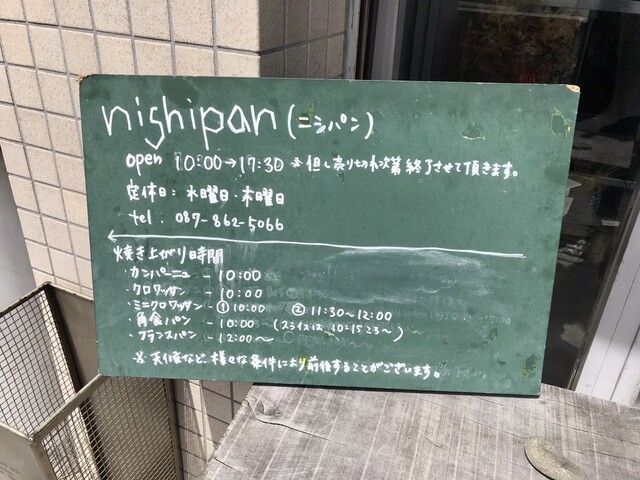 nishipan (ニシパン)
open 10:00→17:30 ※但し売り切れ次第終了させて頂きます。
定休日: 水曜日・木曜日
tel. 087-862-5066
焼き上がり時間
・カンパーニュ - 10:00
・クロワッサン - 10:00
・ミニクロワッサン - ① 10:00 ② 11:30~12:00
・角食パン - 10:00 (スライスは 10:15ころ~)
・フランスパン - 12:00~
※ 天候など、様々な条件により前後することがございます。